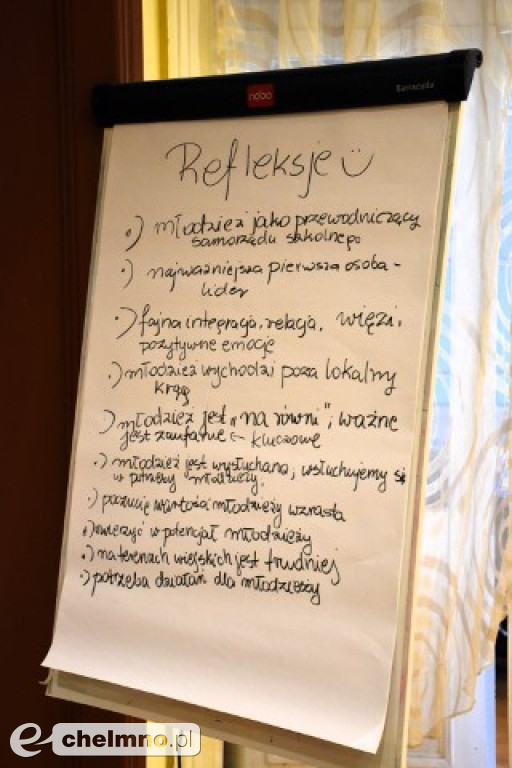 nobo
Barracuda
Refleksje
•) młodzież jako przewodniczący
samorządu szkolnego
•) najważniejsza pierwsza osoba -
lider
•) fajna integracja, relacja, więzi,
pozytywne emocje
•) młodzież wychodzi poza lokalny
krąg
•) młodzież jest „na równi", ważne
jest zaufanie ← kluczowe
•) młodzież jest wysłuchana, wsłuchujemy się
w potrzeby młodzieży.
•) poczucie wartości młodzieży wzrasta
•) uwierzyć w potencjał młodzieży
•) na terenach wiejskich jest trudniej
•) potrzeba działań dla młodzieży
e-chelmno.pl